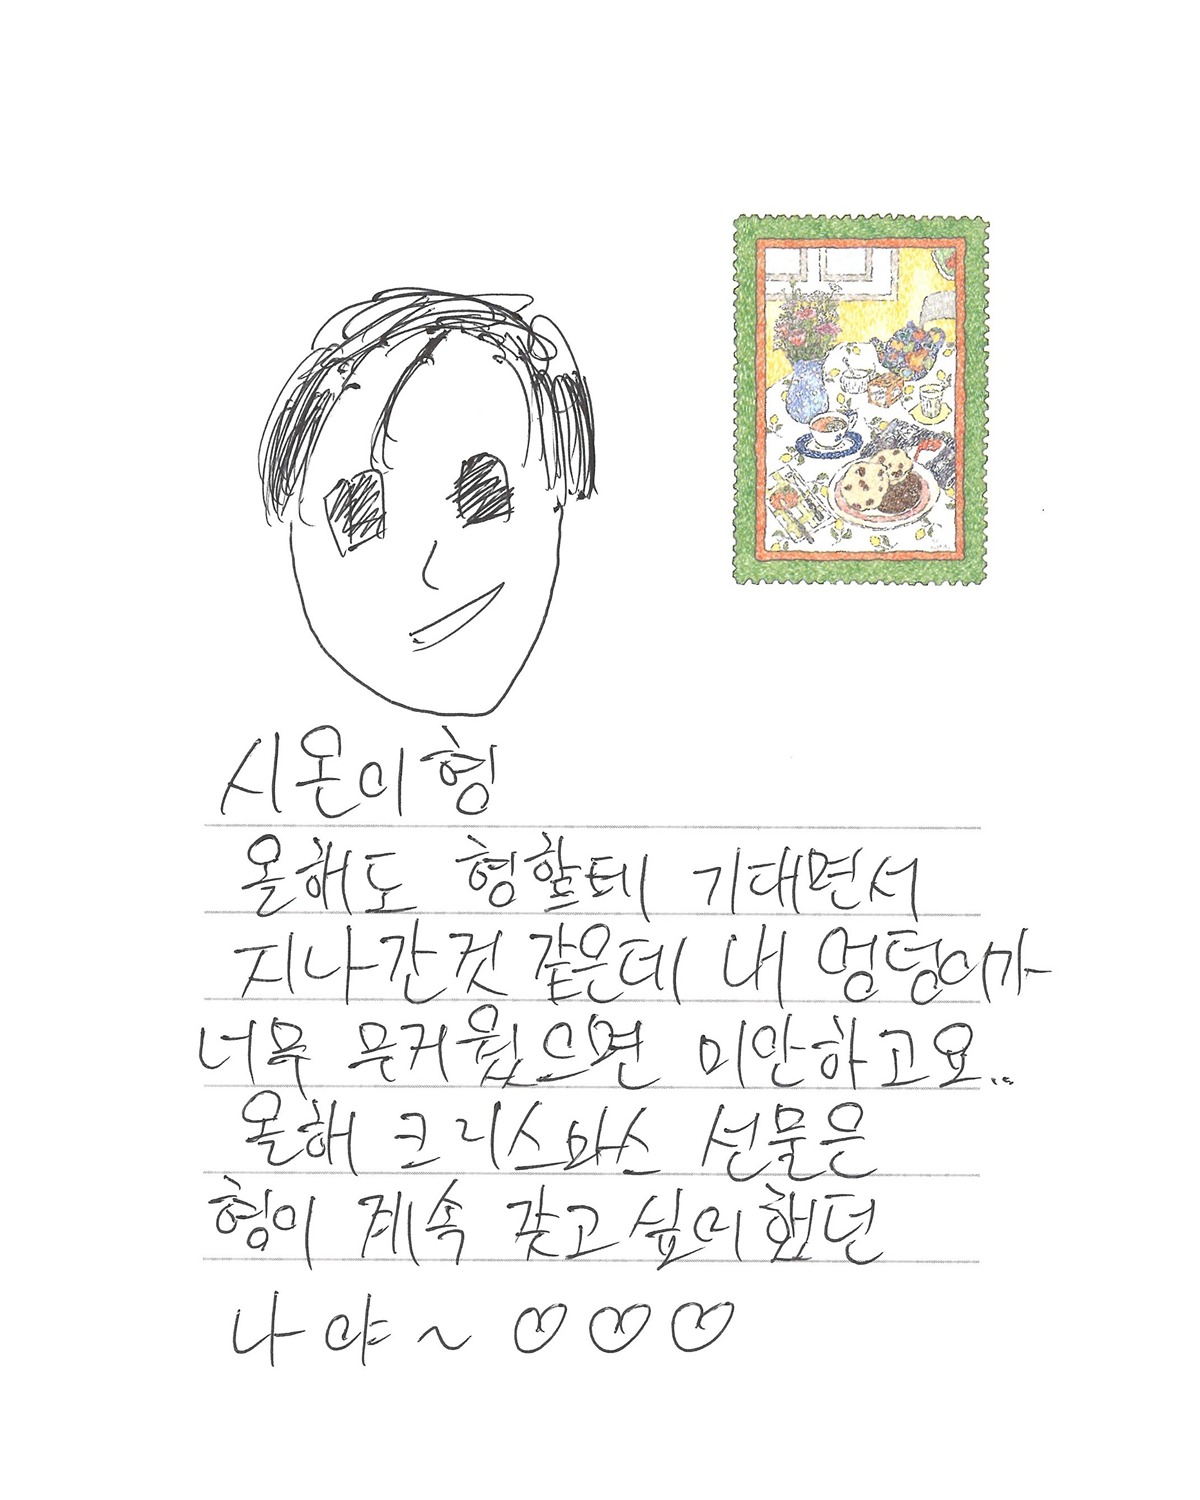 시온이형
올해도 형할테 기대면서
지나간것 같은데 내 엉덩이가
너무 무거웠으면 미안하고요..
올해 크리스마스 선물은
형이 계속 갖고싶어했던
나야~ ♡♡♡